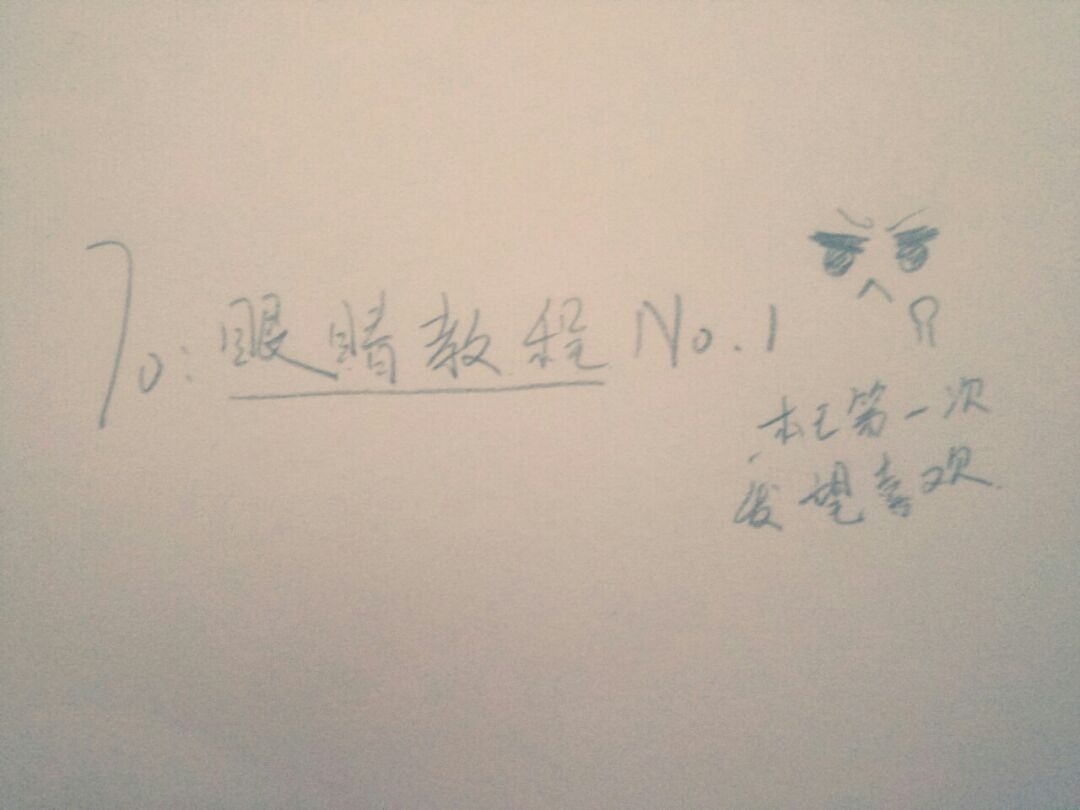 To: 眼睛教程 No.1
本王第一次
发望喜欢